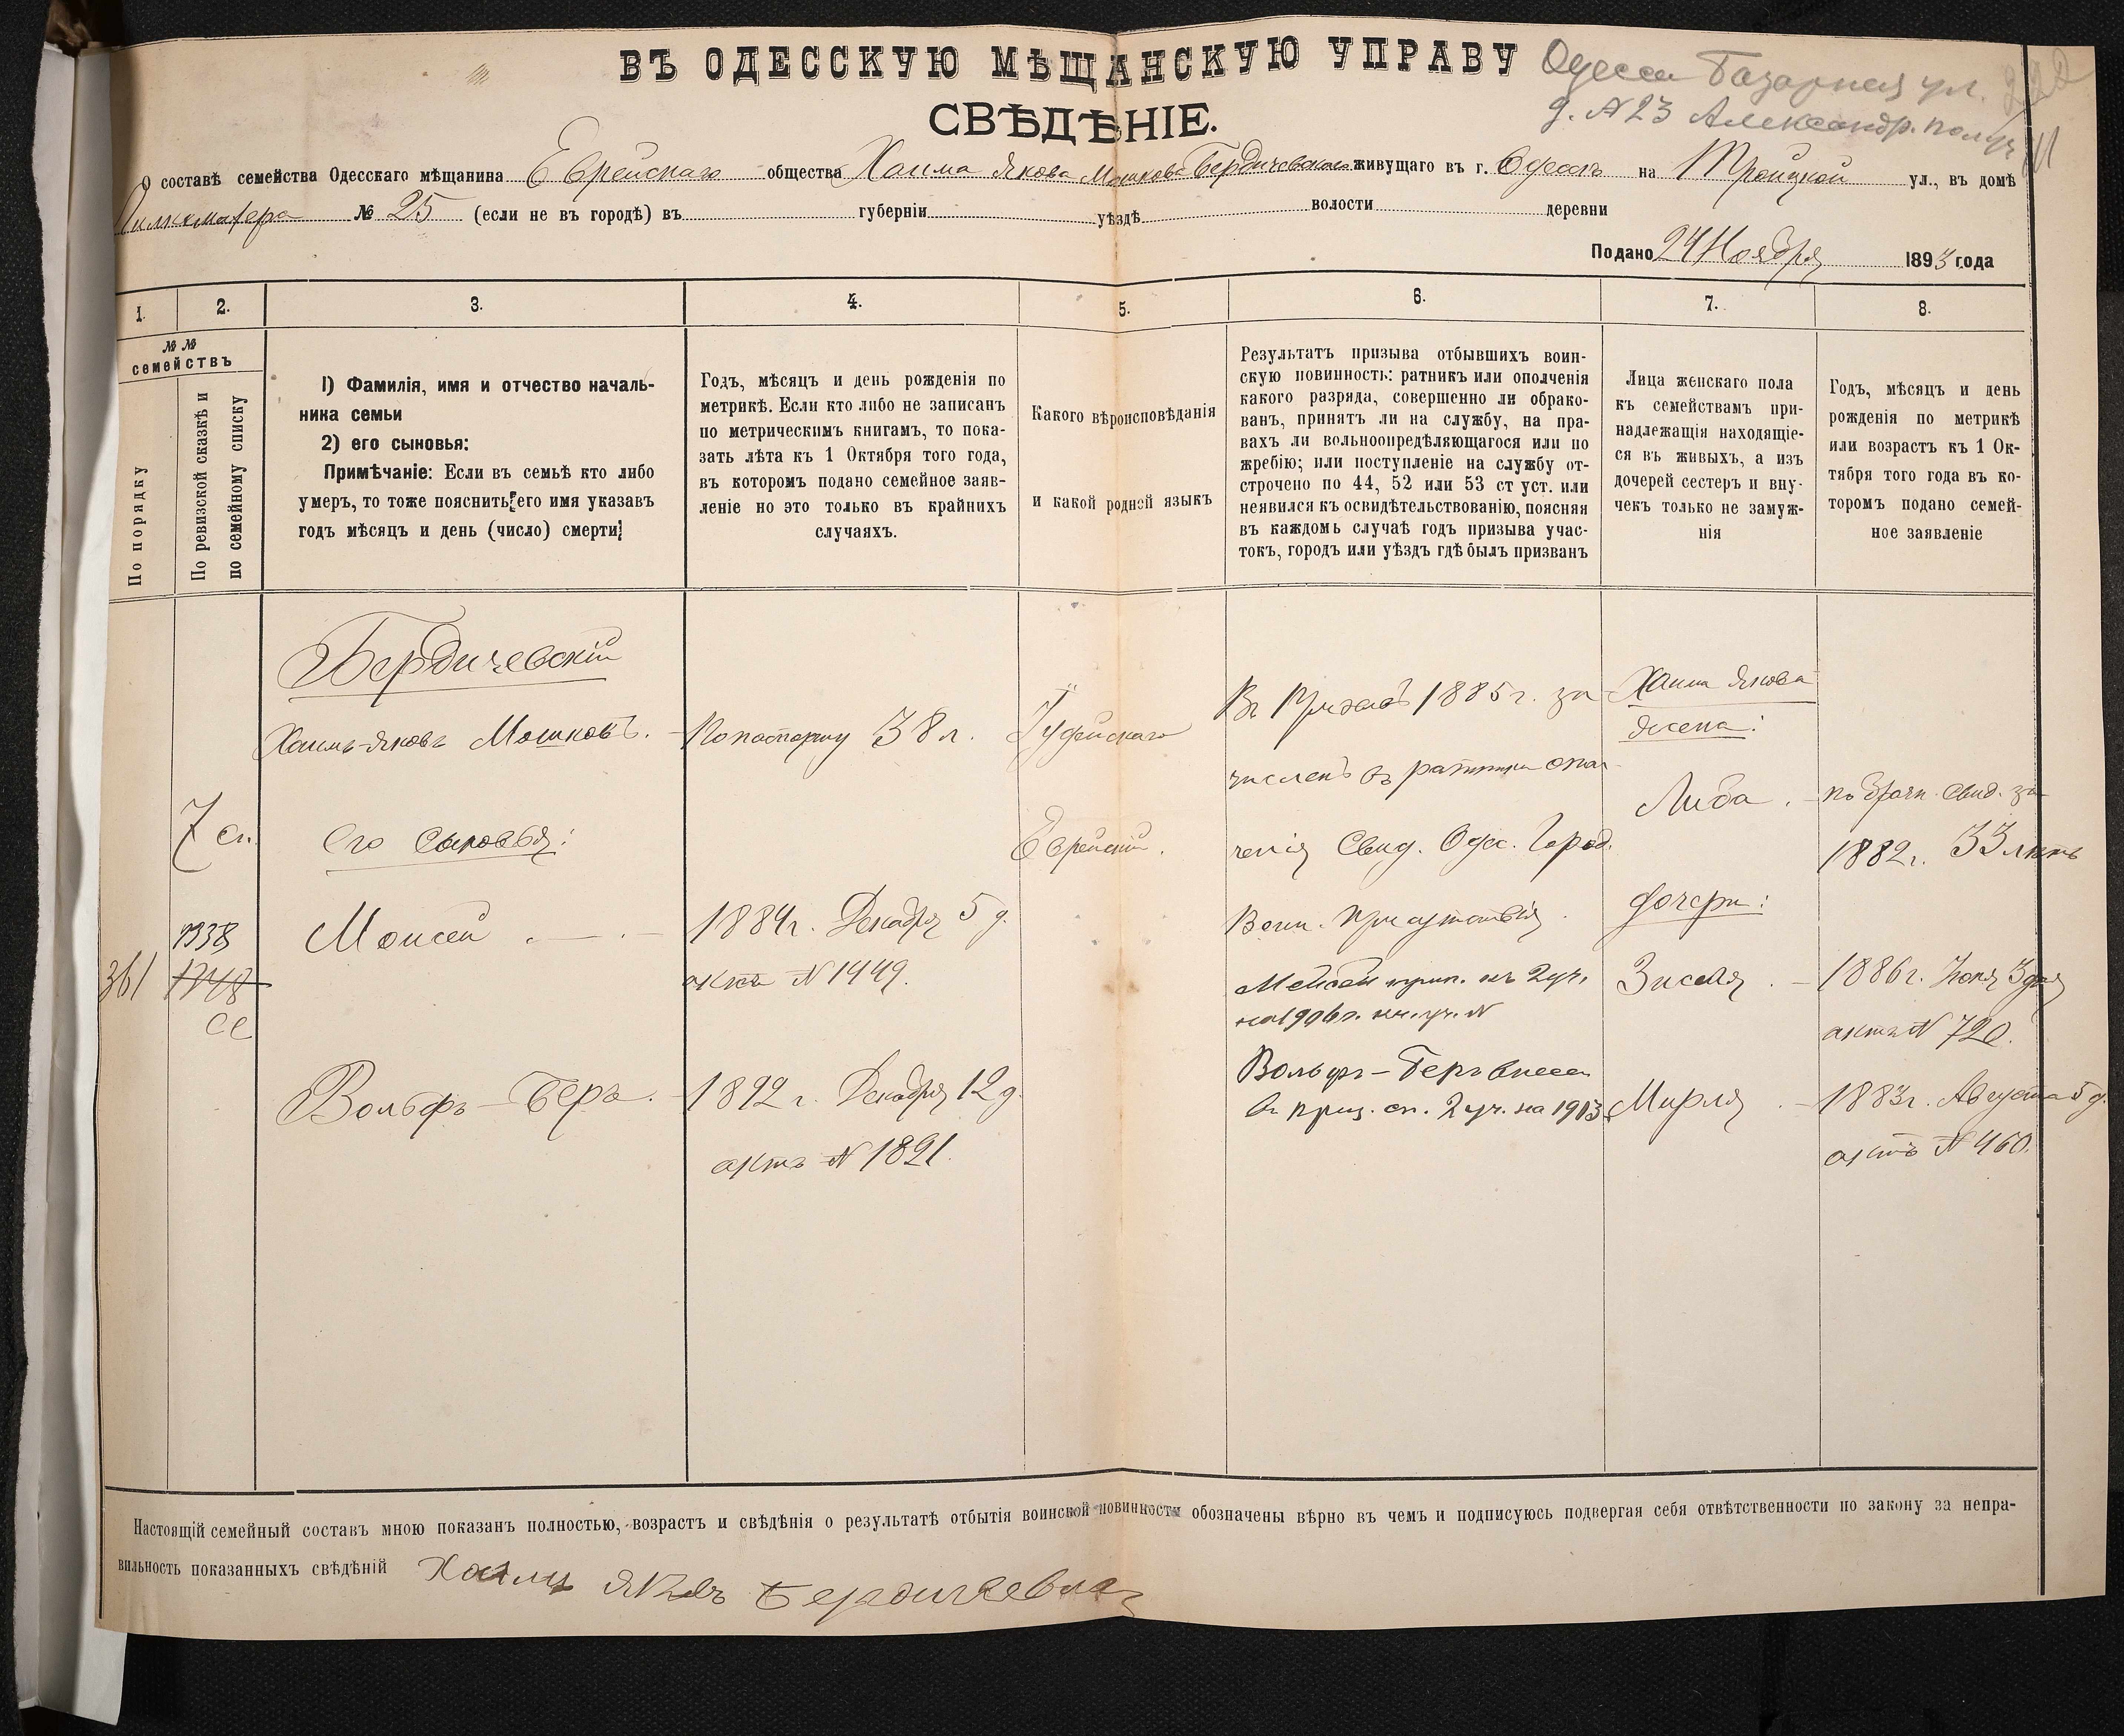 ВЪ ОДЕССКУЮ МѢЩАНСКУЮ УПРАВУ
Одесса Базарная ул.
д. №23 Александр. полиц
СВѢДѢНІЕ.
О составѣ семейства Одесскаго мѣщанина Еврейскаго общества Хаима Якова Мошкова Бердичевскаго живущаго въ г. Одессѣ на Троицкой ул., въ домѣ
№ 25 (если не въ городѣ) въ губерніи уѣздѣ волости деревни
Подано 24 Ноября 1893 года
1. 2. 3. 4. 5. 6. 7. 8.
№№
семействъ
По порядку
По ревизской сказкѣ и
по семейному списку
1) Фамилія, имя и отчество началь-
ника семьи
2) его сыновья:
Примѣчаніе: Если въ семьѣ кто либо
умеръ, то тоже пояснить его имя указавъ
годъ мѣсяцъ и день (число) смерти
Годъ, мѣсяцъ и день рожденія по
метрикѣ. Если кто либо не записанъ
по метрическимъ книгамъ, то пока-
зать лѣта къ 1 Октября того года,
въ которомъ подано семейное заяв-
леніе но это только въ крайнихъ
случаяхъ.
Какого вѣроисповѣданія
и какой родной языкъ
Результатъ призыва отбывшихъ воин-
скую повинность: ратникъ или ополченія
какого разряда, совершенно ли обрако-
ванъ, принятъ ли на службу, на пра-
вахъ ли вольноопредѣляющагося или по
жребію; или поступленіе на службу от-
строчено по 44, 52 или 53 ст уст. или
неявился къ освидѣтельствованію, поясняя
въ каждомъ случаѣ годъ призыва учас-
токъ, городъ или уѣздъ гдѣ былъ призванъ
Лица женскаго пола
къ семействамъ при-
надлежащія находящіе-
ся въ живыхъ, а изъ
дочерей сестеръ и вну-
чекъ только не замуж-
нія
Годъ, мѣсяцъ и день
рожденія по метрикѣ
или возрастъ къ 1 Ок-
тября того года въ ко-
торомъ подано семей-
ное заявленіе
361
7 сп.
1938
1948
се
Бердичевскій
Хаимъ-Яковъ Мошковъ.
Его сыновья:
Моисей
Вольфъ-Беръ.
По паспорту 38 л.
1884 г. Декабря 5 д.
актъ № 1449.
1892 г. Декабря 12 д.
актъ № 1821.
Іудейскаго
Еврейскій.
Въ Призывъ 1885 г. за-
численъ въ ратники опол-
ченія Свид. Одес. Город.
Воин. Присутствія.
Мойсей прип. къ 2 уч.
на 1906 г.
Вольфъ-Беръ внесен
въ приз. сп. 2 уч. на 1913
Хаима Якова
жена:
Либа.
дочери:
Зисля.
Мирля.
по брачн. свид. за
1882 г. 33 лѣтъ
1886 г. Іюня 3 дня
актъ № 720.
1883 г. Августа 5 д.
актъ № 460.
Настоящій семейный составъ мною показанъ полностью, возрастъ и свѣдѣнія о результатѣ отбытія воинской повинности обозначены вѣрно въ чемъ и подписуюсь подвергая себя отвѣтственности по закону за непра-
вильность показанныхъ свѣдѣній